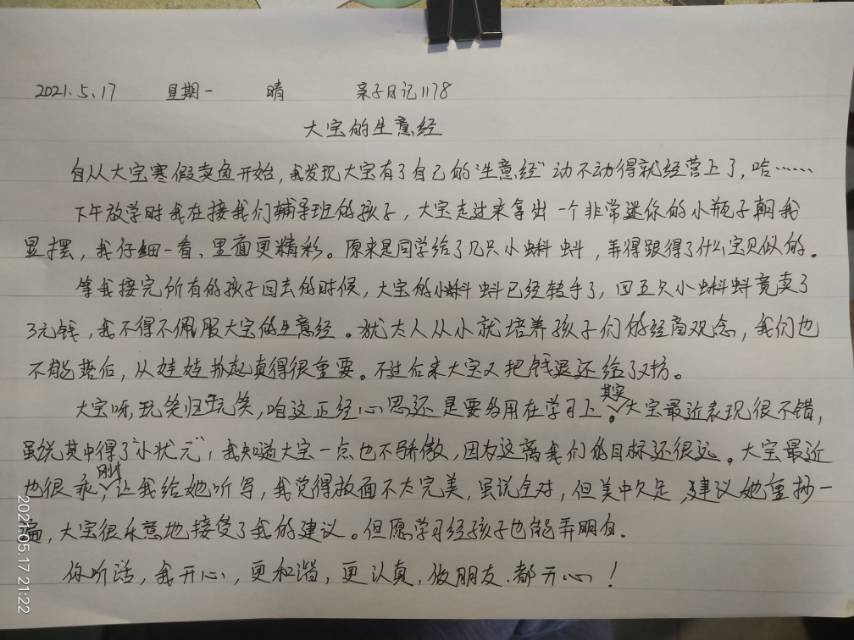 2021.5.17 星期一 晴 亲子日记1178
大宝的生意经
自从大宝寒假卖鱼开始，我发现大宝有了自己的“生意经”动不动得就经营上了，哈……
下午放学时我在接我们辅导班的孩子，大宝走过来拿出一个非常迷你的小瓶子朝我
显摆，我仔细一看、里面更精彩。原来是同学给了几只小蝌蚪，弄得跟得了什么宝贝似的。
等我接完所有的孩子回去的时候，大宝的小蝌蚪已经转手了，四五只小蝌蚪竟卖了
3元钱，我不得不佩服大宝的生意经。犹太人从小就培养孩子们的经商观念，我们也
不能落后，从娃娃抓起真得很重要。不过后来大宝又把钱退还给了对方。
大宝呀，玩笑归玩笑，咱这正经心思还是要多用在学习上。其实大宝最近表现很不错，
虽说其中得了“小状元”，我知道大宝一点也不骄傲，因为这离我们的目标还很远。大宝最近
也很乖，让我给她听写，我觉得放面不太完美，虽说全对，但美中欠足，建议她重抄一
遍，大宝很乐意地接受了我的建议。但愿学习经孩子也能弄明白.
你听话，我开心，更和谐，更认真，做朋友、都开心！
2021.05.17 21:22